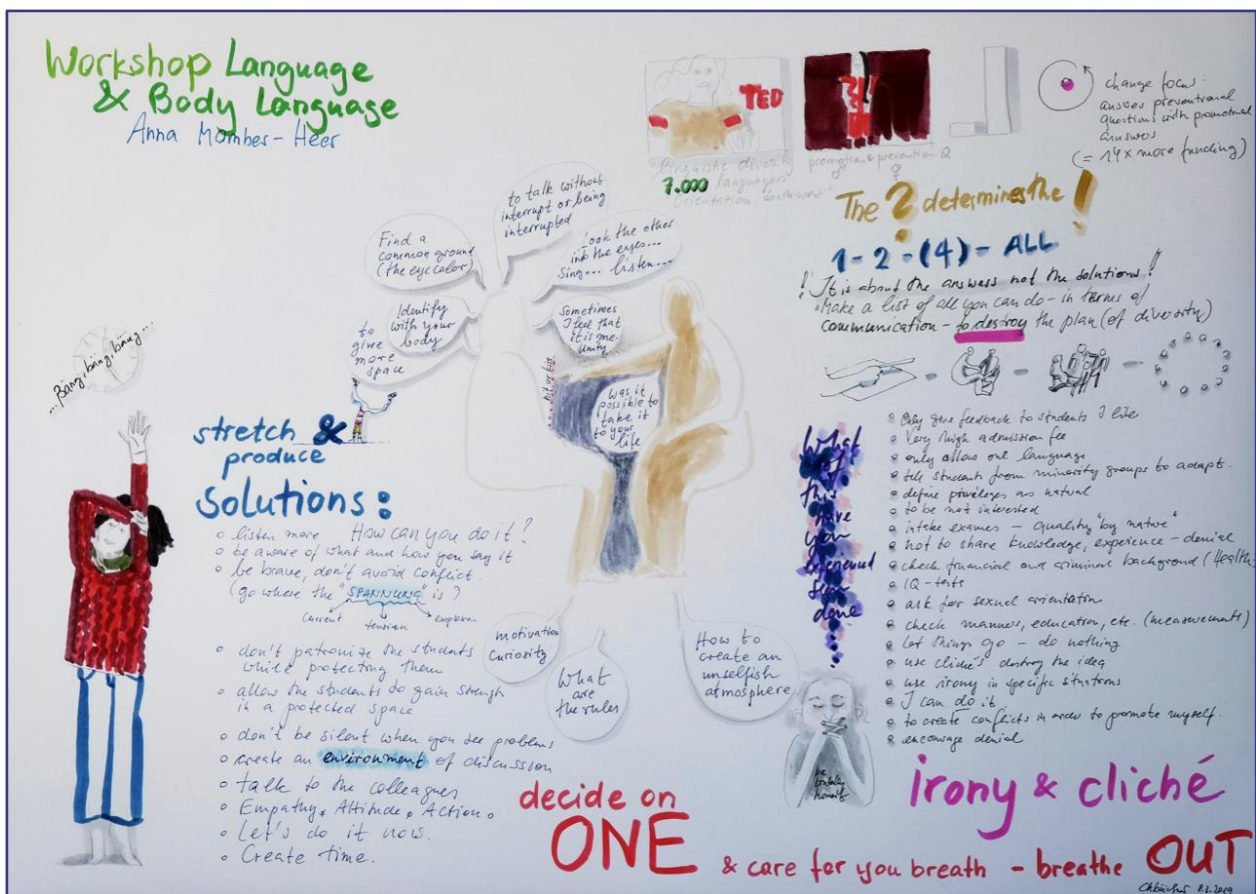 Workshop Language
& Body Language
Anna Momber-Heer
TED
linguistic diversity
7.000 languages
"Orientation
promotion & prevention Q
change focus:
answer preventional
questions with promotional
answer
(= 14x more funding)
The ? determines the !
1 - 2 - (4) - ALL
! It is about the answers not the solutions!
Make a list of all you can do - in terms of
communication - to destroy the plan (of diversity)
to talk without
interrupt or being
interrupted
Find a
common ground
(the eye color)
Look the other
into the eyes...
Sing... listen...
Identify
with your
body
Sometimes
I feel that
it is me.
Unity
to
give
more
space
Was it
possible to
take it
to your
life
...Bäng, bäng, bäng...
stretch &
produce
solutions:
listen more How can you do it?
be aware of what and how you say it
be brave, don't avoid conflict.
(go where the "SPANNUNG" is?)
current tension explore
don't patronize the students
while protecting them
allow the students to gain strength
in a protected space
don't be silent when you see problems
create an environment of discussion
talk to the colleagues
Empathy, Attitude, Action.
Let's do it now.
Create time.
motivation
curiosity
What
are
the rules
How to
create an
unselfish
atmosphere
What
of
this
have
you
experienced
seen
done
Only give feedback to students I like
Very high admission fee
only allow one language
tell students from minority groups to adapt.
define privileges as natural
to be not interested
intake exames - quality "by nature"
not to share knowledge, experience - denial
check financial and criminal background (Health)
IQ - tests
ask for sexual orientation
check manners, education, etc. (measurements)
let things go - do nothing
use cliché's destroy the idea
use irony in specific situations
I can do it
to create conflicts in order to promote myself.
encourage denial
irony & cliché
decide on
ONE
& care for you breath - breathe OUT
8.3.2019